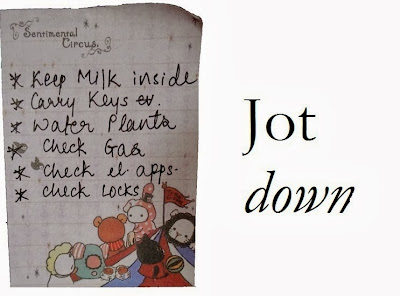 Sentimental
Circus
* Keep Milk inside
* Carry Keys
* Water Plants
* Check Gas
* Check el. apps.
* Check Locks
Jot
down